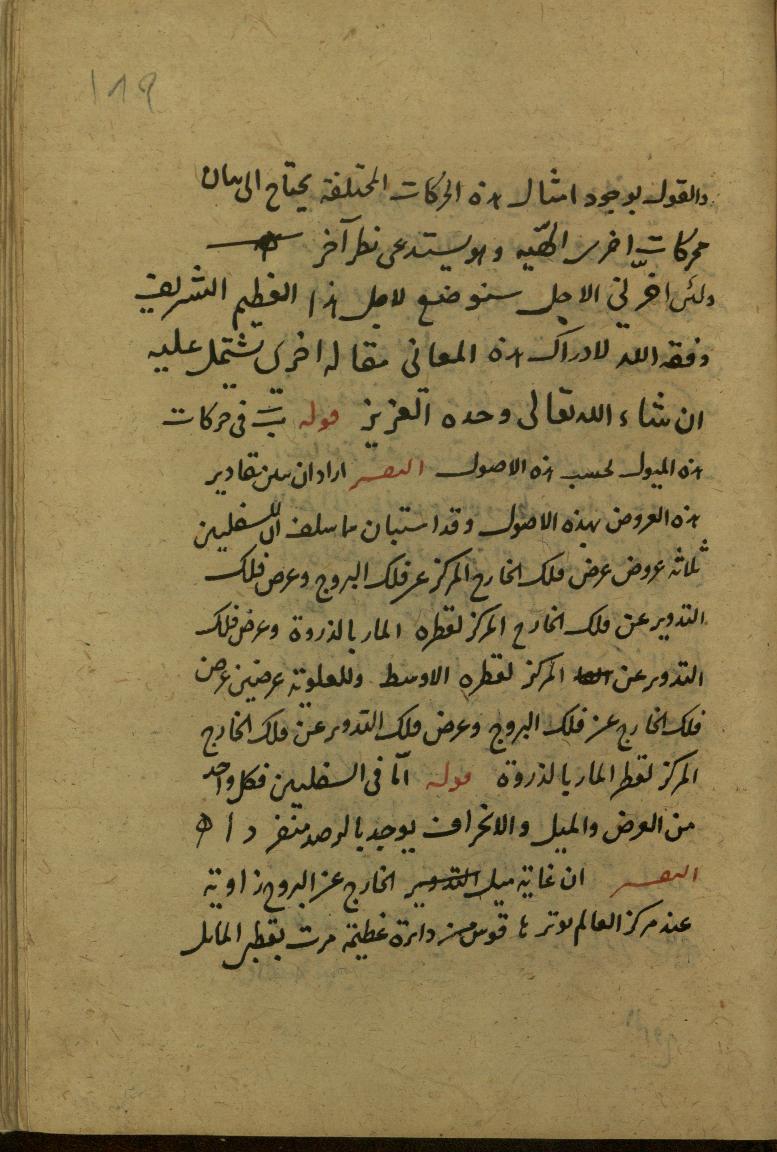 ١٨٩
والقول بوجود امثال هذه الحركات المختلفة يحتاج الى بيان
محركات اخرى الهيّه وهو يستدعى نظر آخر
ولئن اخّرنى الاجل سنوضع لاجل هذا العظيم الشريف
وفقه الله لادراك هذه المعانى مقالة اخرى تشتمل عليه
ان شاء الله تعالى وحده العزيز قوله فى حركات
هذه الميول بحسب هذه الاصول التفسير اراد ان يبين مقادير
هذه العروض بهذه الاصول وقد استبان بما سلف ان للسفليين
ثلاثة عروض عرض فلك الخارج المركز عن فلك البروج وعرض فلك
التدوير عن فلك الخارج المركز لقطره المار بالذروة وعرض فلك
التدوير عن المركز لقطره الاوسط وللعلوية عرضين عرض
فلك الخارج عن فلك البروج وعرض فلك التدوير عن فلك الخارج
المركز لقطر المار بالذروة قوله امّا فى السفليين فكل واحد
من العرض والميل والانحراف يوجد بالرصد منفردا
التفسير ان غاية ميل التدوير الخارج عن البروج زاوية
عند مركز العالم يوترها قوس من دائرة عظيمة مرت بقطبى المايل